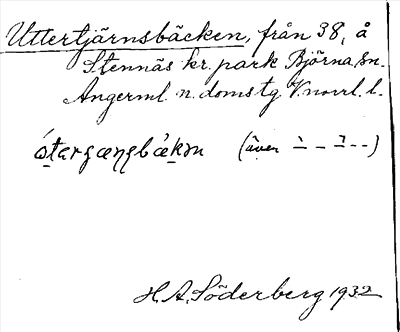 Uttertjärnsbäcken, från 38, å
Stennäs kr. park Björna sn.
Ångerml. n. domstg V.norrl. l.
(även
H. A. Söderberg 1932